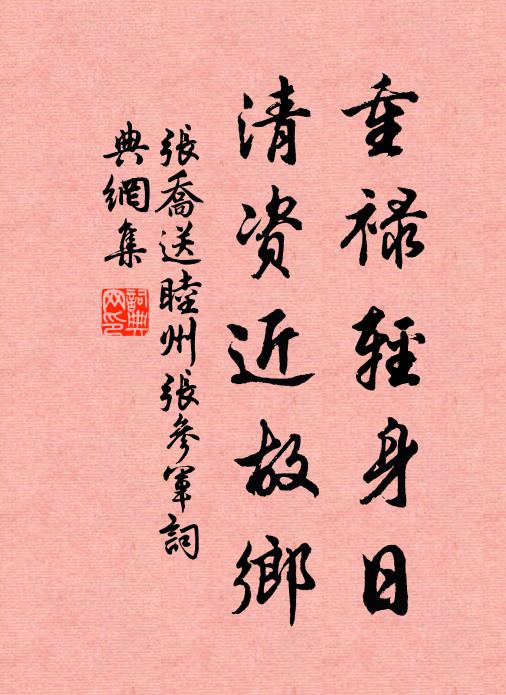 重禄輕身日
清资近故鄉
張喬送睦州張參軍詞
典網集
詞典
网印